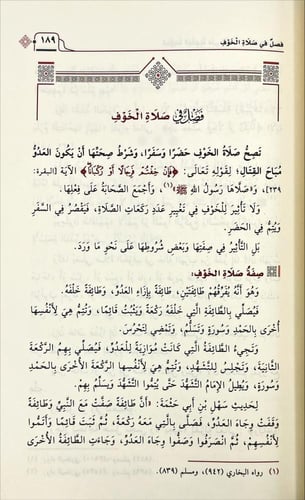 فصلٌ في صَلَاةِ الْخَوْفِ
١٨٩
فَصْلٌ فِي صَلَاةِ الْخَوْفِ
تَصِحُّ صَلَاةُ الْخَوْفِ حَضَرًا وَسَفَرًا، وَشَرْطُ صِحَّتِهَا أَنْ يَكُونَ الْعَدُوُّ
مُبَاحَ الْقِتَالِ؛ لِقَوْلِهِ تَعَالَى: ﴿فَإِنْ خِفْتُمْ فَرِجَالًا أَوْ رُكْبَانًا﴾ الآيَةَ [البقرة:
٢٣٩]، وَصَلَّاهَا رَسُولُ اللهِ ﷺ(١)، وَأَجْمَعَ الصَّحَابَةُ عَلَى فِعْلِهَا.
وَلَا تَأْثِيرَ لِلْخَوْفِ فِي تَغْيِيرِ عَدَدِ رَكَعَاتِ الصَّلَاةِ، فَيَقْصُرُ فِي السَّفَرِ
وَيُتِمُّ فِي الْحَضَرِ.
بَلِ التَّأْثِيرُ فِي صِفَتِهَا وَبَعْضِ شُرُوطِهَا عَلَى نَحْوِ مَا وَرَدَ.
صِفَةُ صَلَاةِ الْخَوْفِ:
وَهُوَ أَنَّهُ يُفَرِّقُهُمْ طَائِفَتَيْنِ، طَائِفَةً بِإِزَاءِ الْعَدُوِّ، وَطَائِفَةً خَلْفَهُ،
فَيُصَلِّي بِالطَّائِفَةِ الَّتِي خَلْفَهُ رَكْعَةً وَيَثْبُتُ قَائِمًا، وَتُتِمُّ هِيَ لِأَنْفُسِهَا
أُخْرَى بِالْحَمْدِ وَسُورَةٍ وَتُسَلِّمُ، وَتَمْضِي لِتَحْرُسَ.
وَتَجِيءُ الطَّائِفَةُ الَّتِي كَانَتْ مُوَازِيَةً لِلْعَدُوِّ، فَيُصَلِّي بِهِمُ الرَّكْعَةَ
الثَّانِيَةَ، وَتَجْلِسُ لِلتَّشَهُّدِ، وَتُتِمُّ هِيَ لِأَنْفُسِهَا الرَّكْعَةَ الْأُخْرَى بِالْحَمْدِ
وَسُورَةٍ، وَيُطِيلُ الْإِمَامُ التَّشَهُّدَ حَتَّى يُتِمُّوا التَّشَهُّدَ وَيُسَلِّمُ بِهِمْ.
لِحَدِيثِ سَهْلِ بْنِ أَبِي حَثْمَةَ: «أَنَّ طَائِفَةً صَفَّتْ مَعَ النَّبِيِّ وَطَائِفَةً
وَقَفَتْ وِجَاهَ الْعَدُوِّ، فَصَلَّى بِالَّتِي مَعَهُ رَكْعَةً، ثُمَّ ثَبَتَ قَائِمًا وَأَتَمُّوا
لِأَنْفُسِهِمْ، ثُمَّ انْصَرَفُوا وَصَفُّوا وِجَاهَ الْعَدُوِّ، وَجَاءَتِ الطَّائِفَةُ الْأُخْرَى
(١) رواه البخاري (٩٤٢)، ومسلم (٨٣٩).